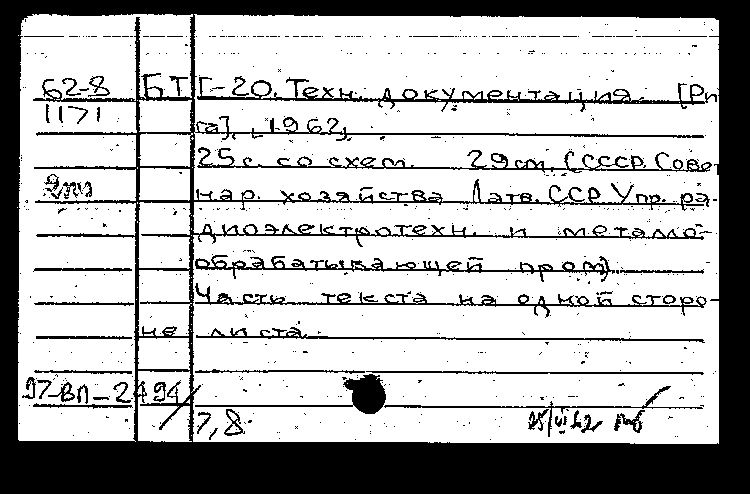 62-8 БТГ-20. Техн. документация. [Ри-
1171
га], [1962].
25 с. со схем. 29 см. (СССР. Совет
нар. хозяйства Латв. ССР. Упр. ра-
диоэлектротехн. и металло-
обрабатывающей пром)
Часть текста на одной сторо-
не листа.
97-ВП-2494
7,8.